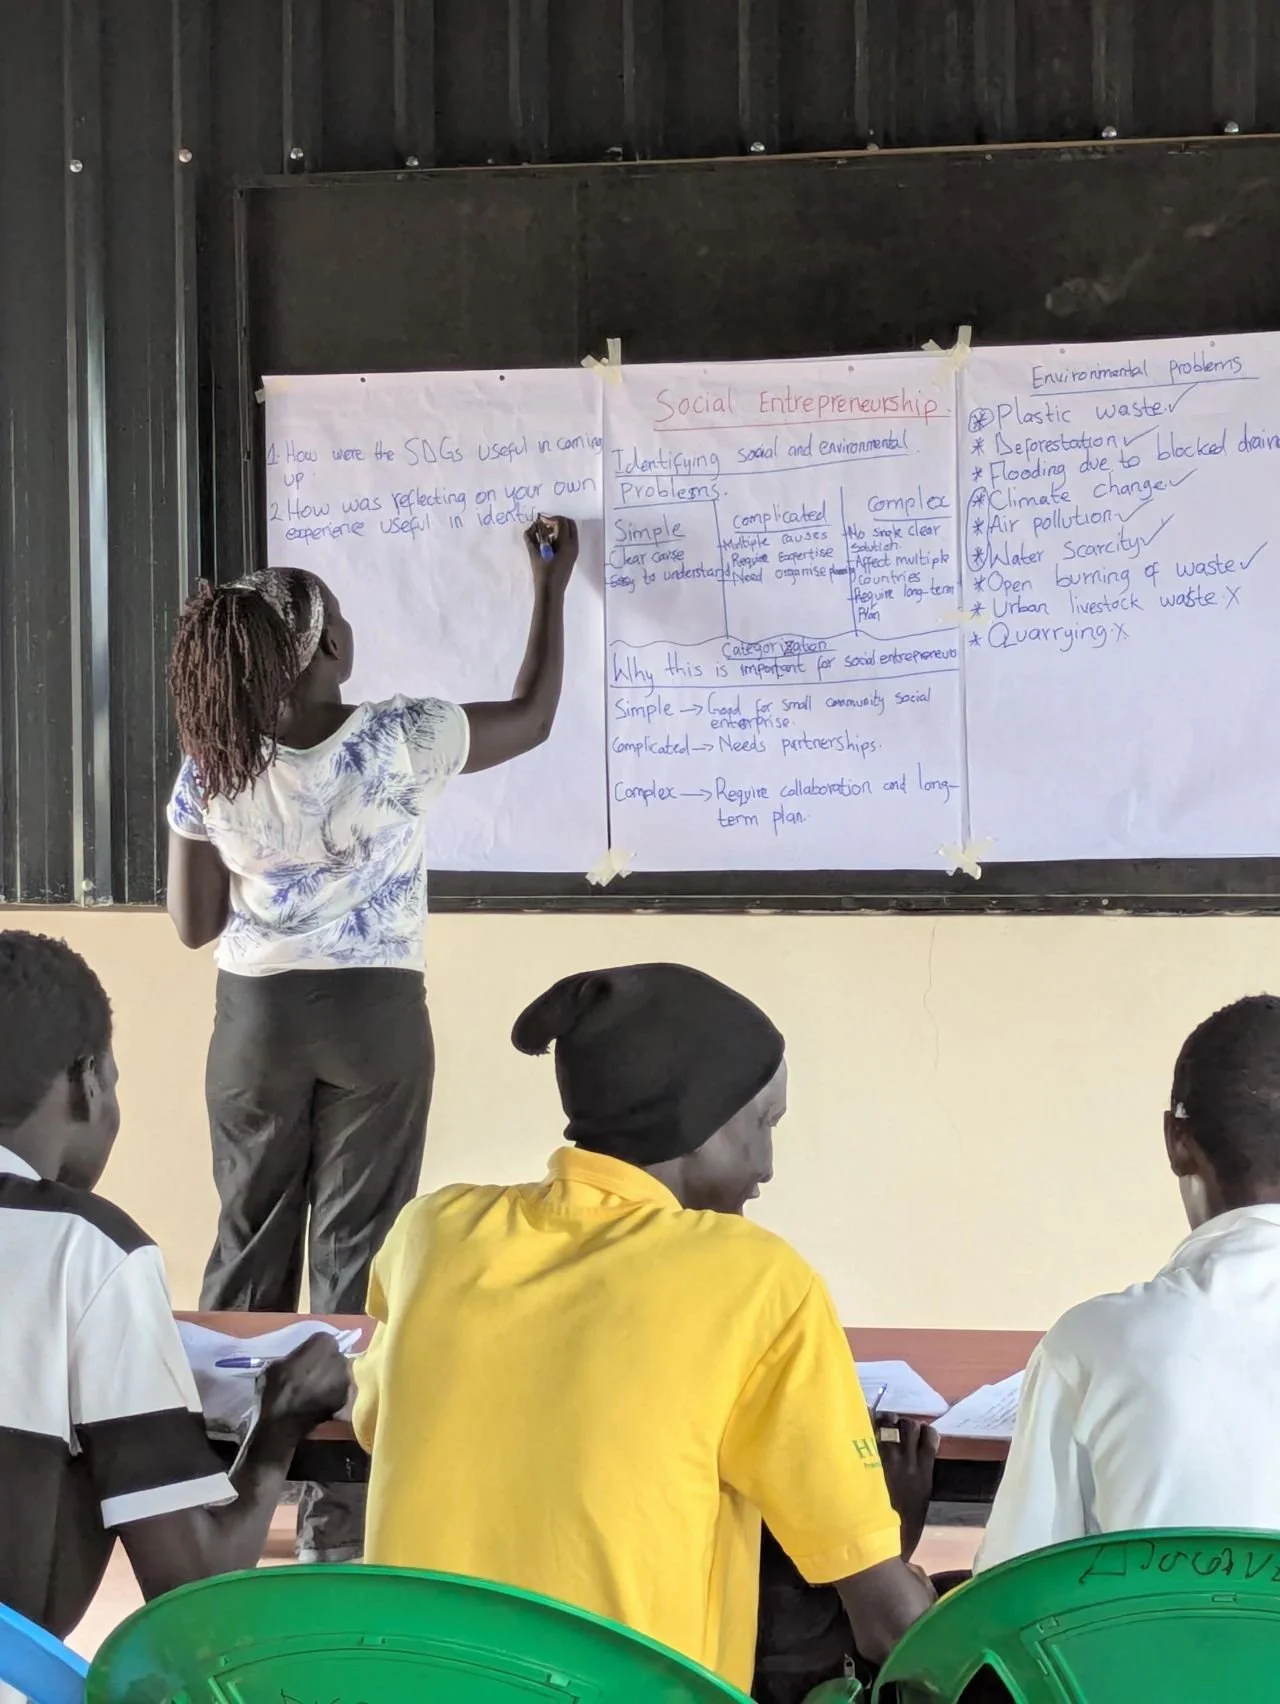 1. How were the SDGs useful in coming
up
2. How was reflecting on your own
experience useful in identif
Social Entrepreneurship.
Identifying social and environmental
Problems.
Simple
Clear cause
Easy to understand
complicated
Multiple causes
Require Expertise
Need organise planning
Complex
No single clear
solution.
Affect multiple
countries
Require long-term
Plan
Categorization
Why this is important for social entrepreneurs
Simple → Good for small community social
enterprise.
Complicated → Needs partnerships.
Complex → Require collaboration and long-
term plan.
Environmental Problems
* Plastic waste ✓
* Deforestation ✓
* Flooding due to blocked drain
* Climate change ✓
* Air pollution ✓
* Water Scarcity ✓
* Open burning of waste ✓
* Urban livestock waste X
* Quarrying X
H